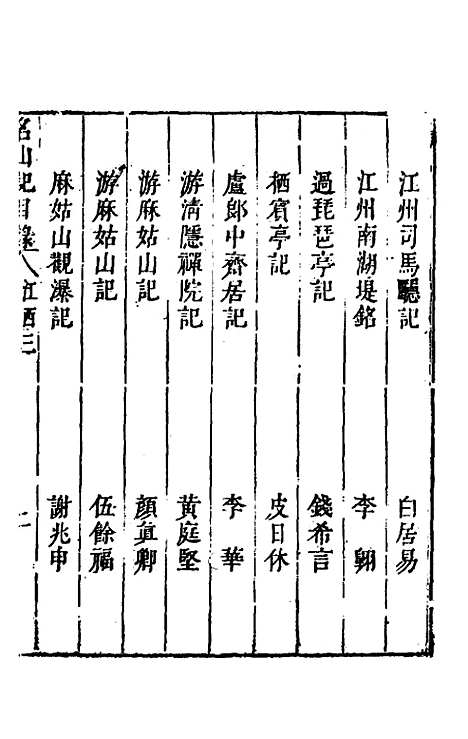 江州司馬廳記　白居易
江州南湖堤銘　李翺
過琵琶亭記　錢希言
栖賓亭記　皮日休
盧郎中齋居記　李華
游清隱禪院記　黃庭堅
游麻姑山記　顏眞卿
游麻姑山記　伍餘福
麻姑山觀瀑記　謝兆申
名山記目錄　八　江西三　二